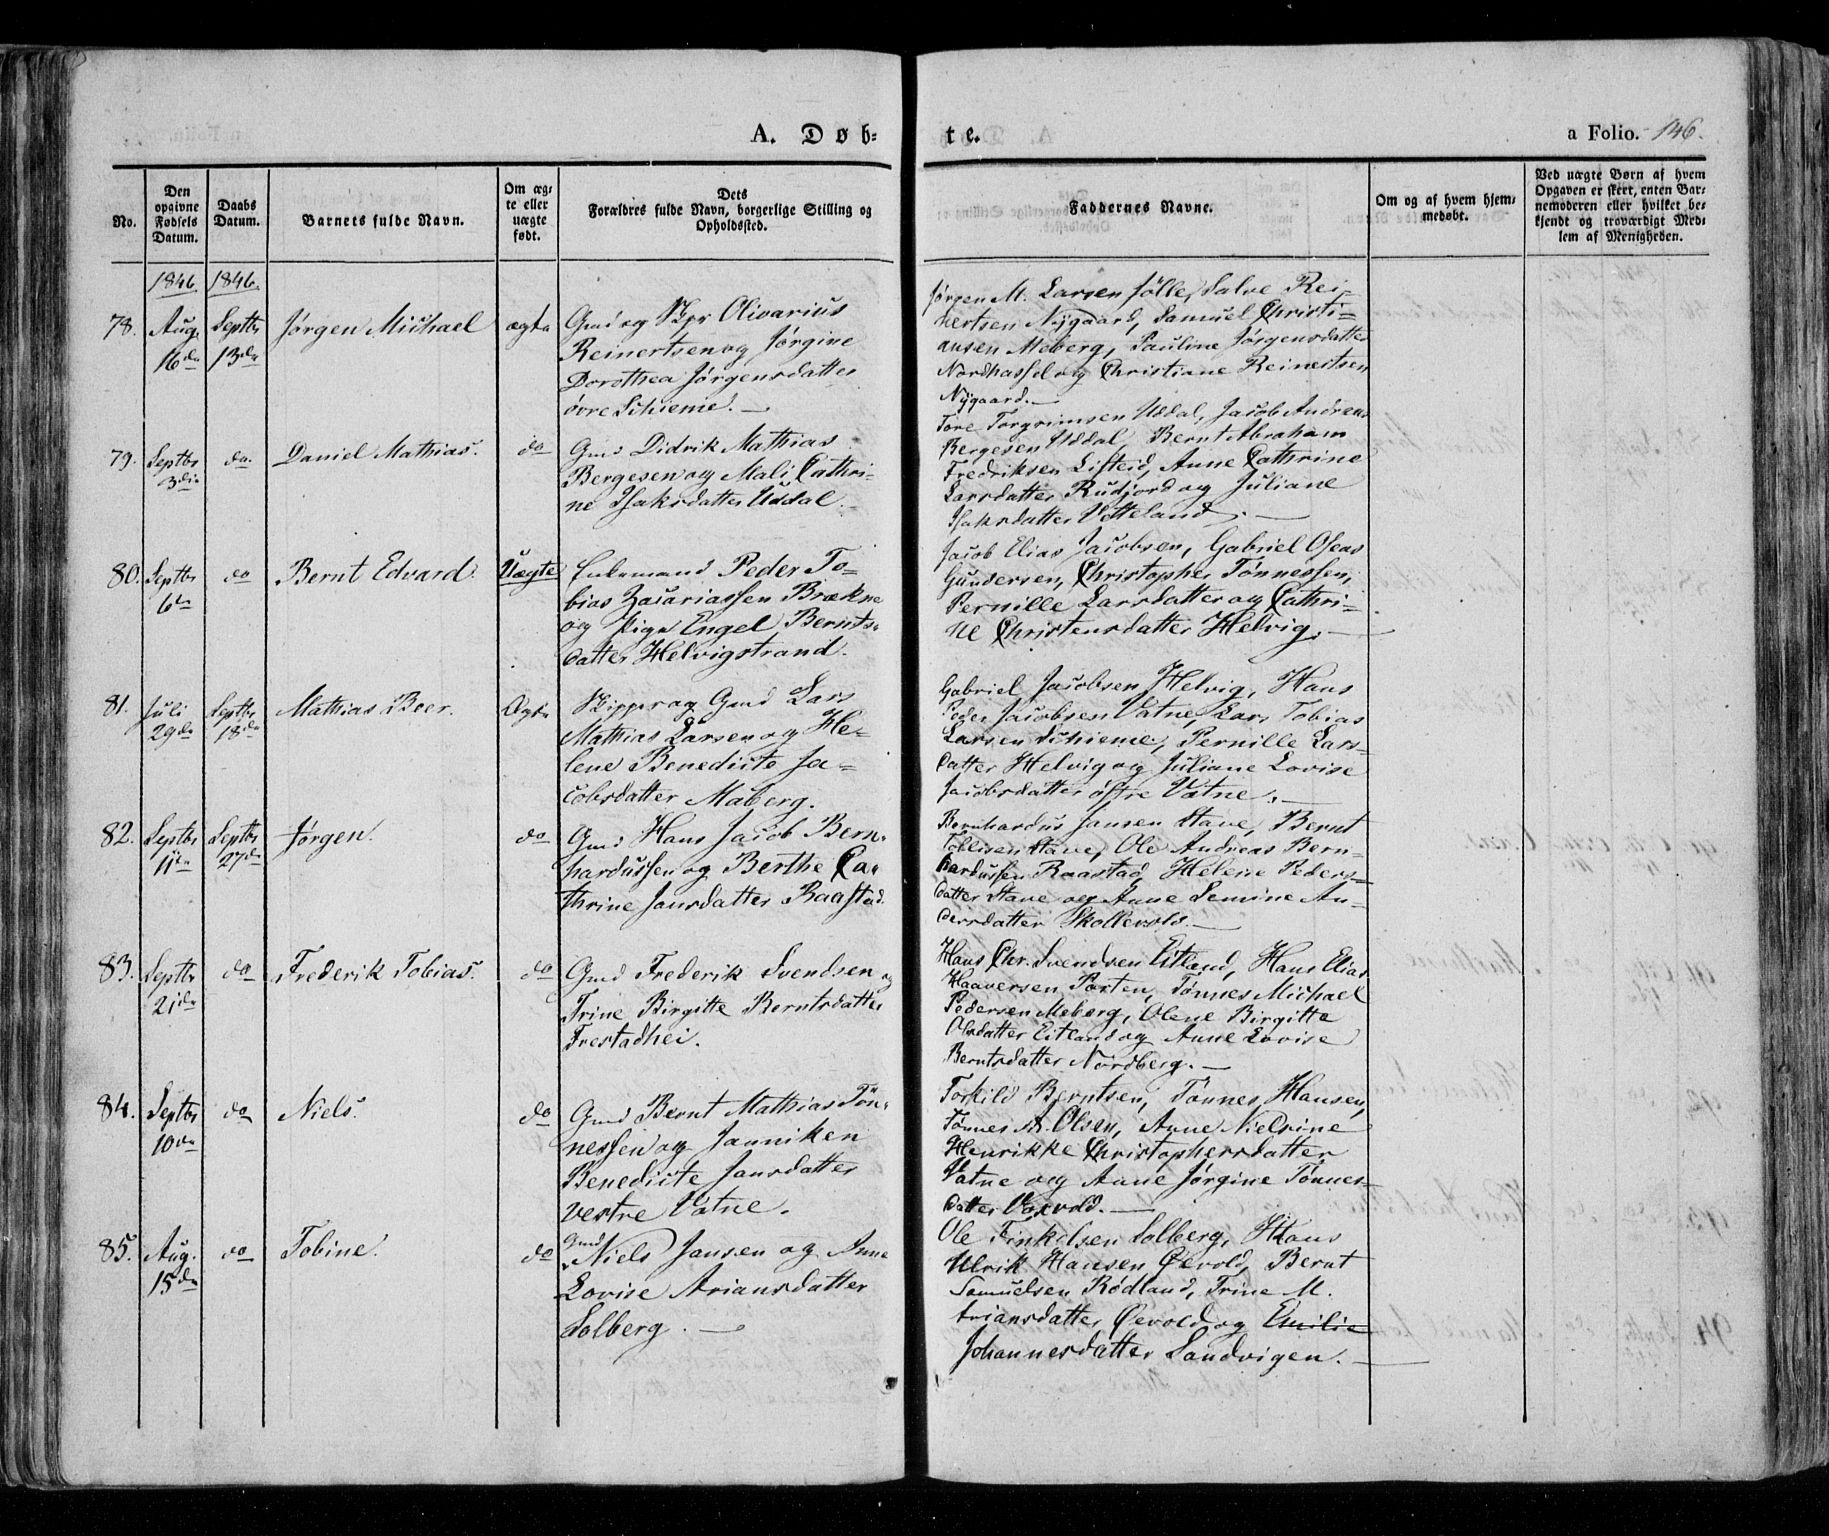 A. Døb-
te.
a Folio. 146.
No.
Den opgivne Fødsels Datum.
Daabs Datum.
Barnets fulde Navn.
Om ægte eller uægte født.
Dets
Forældres fulde Navn, borgerlige Stilling og
Opholdssted.
Faddernes Navne.
Om og af hvem hjemmedøbt.
Ved uægte Børn af hvem
Opgaven er skeet, enten Bar-
nemoderen eller hvilket be-
kjendt og troværdigt Med-
lem af Menigheden.
1846. 1846.
78. Aug. 16de Septbr 13de Jørgen Michael ægte
Gmd og Skpr Olivarius
Reinertsen og Jørgine
Dorothea Jørgensdatter
övre Schieme. —
Jørgen M. Larsen Jölle, Salve Rei-
nertsen Nygaard, Samuel Christi-
ansen Meberg, Pauline Jørgensdatter
Nordhassel og Christiane Reinertsen
Nygaard. —
79. Septbr 3die do. Daniel Mathias. do
Gmd Didrik Mathias
Bergesen og Mali Cathri-
ne Isaksdatter Uddal. —
Tore Torgrimsen Uddal, Jacob Andreas
Bergesen Uddal, Bernt Abraham
Fredriksen Listeid, Anne Cathrine
Larsdatter Rudjord og Juliane
Isaksdatter Vetteland. —
80. Septbr 6te do Bernt Edvard. Uægte
Enkemand Peder To-
bias Zacariassen Brækne
og Pige Engel Bernts-
datter Helvigstrand.
Jacob Elias Jacobsen, Gabriel Oseas
Gundersen, Christopher Tønnessen,
Pernille Larsdatter og Cathri-
ne Christensdatter Helvig. —
81. Juli 29de Septbr 18de Mathias Beer. Ægte
Skipper og Gmd Lars
Mathias Larsen og He-
lene Benedicte Ja-
cobsdatter Maberg.
Gabriel Jacobsen Helvig, Hans
Peder Jacobsen Vatne, Lars Tobias
Larsen Schieme, Pernille Lars-
datter Helvig og Juliane Lovise
Jacobsdatter östre Vatne. —
82. Septbr 11te Septbr 27de Jørgen. do
Gmd Hans Jacob Bern-
hardussen og Berthe Ca-
thrine Jansdatter Raastad.
Bernhardus Jansen Stave, Bernt
Tollisen Stave, Ole Andreas Bern-
hardussen Raastad, Helene Peders-
datter Stave og Anne Semine An-
dersdatter Skollevold. —
83. Septbr 21de do Frederik Tobias. do
Gmd Frederik Svendsen og
Trine Birgitte Berntsdatter
Frestadhei.
Hans Chr. Svendsen Eitland, Hans Elias
Haaversen Porten, Tønnes Michael
Pedersen Meberg, Olene Birgitte
Olsdatter Eitland og Anne Lovise
Berntsdatter Nordberg. —
84. Septbr 10de do Niels. do
Gmd Bernt Mathias Tön-
nessen og Janniken
Benedicte Jansdatter
Vestre Vatne.
Torkild Berntsen, Tönnes Hansen,
Tønnes A. Olsen, Anne Nielsine
Henrikke Christophersdatter
Vatne og Anne Jørgine Tönnes-
datter Varvold. —
85. Aug. 15de do Tobine. do
Gmd Niels Jansen og Anne
Lovise Ariansdatter
Solberg. —
Ole Finkelsen Solberg, Hans
Ulrik Hansen Øevold, Bernt
Samuelsen Rødland, Trine M.
Ariansdatter Øevold og Emilie
Johannesdatter Sandvigen. —